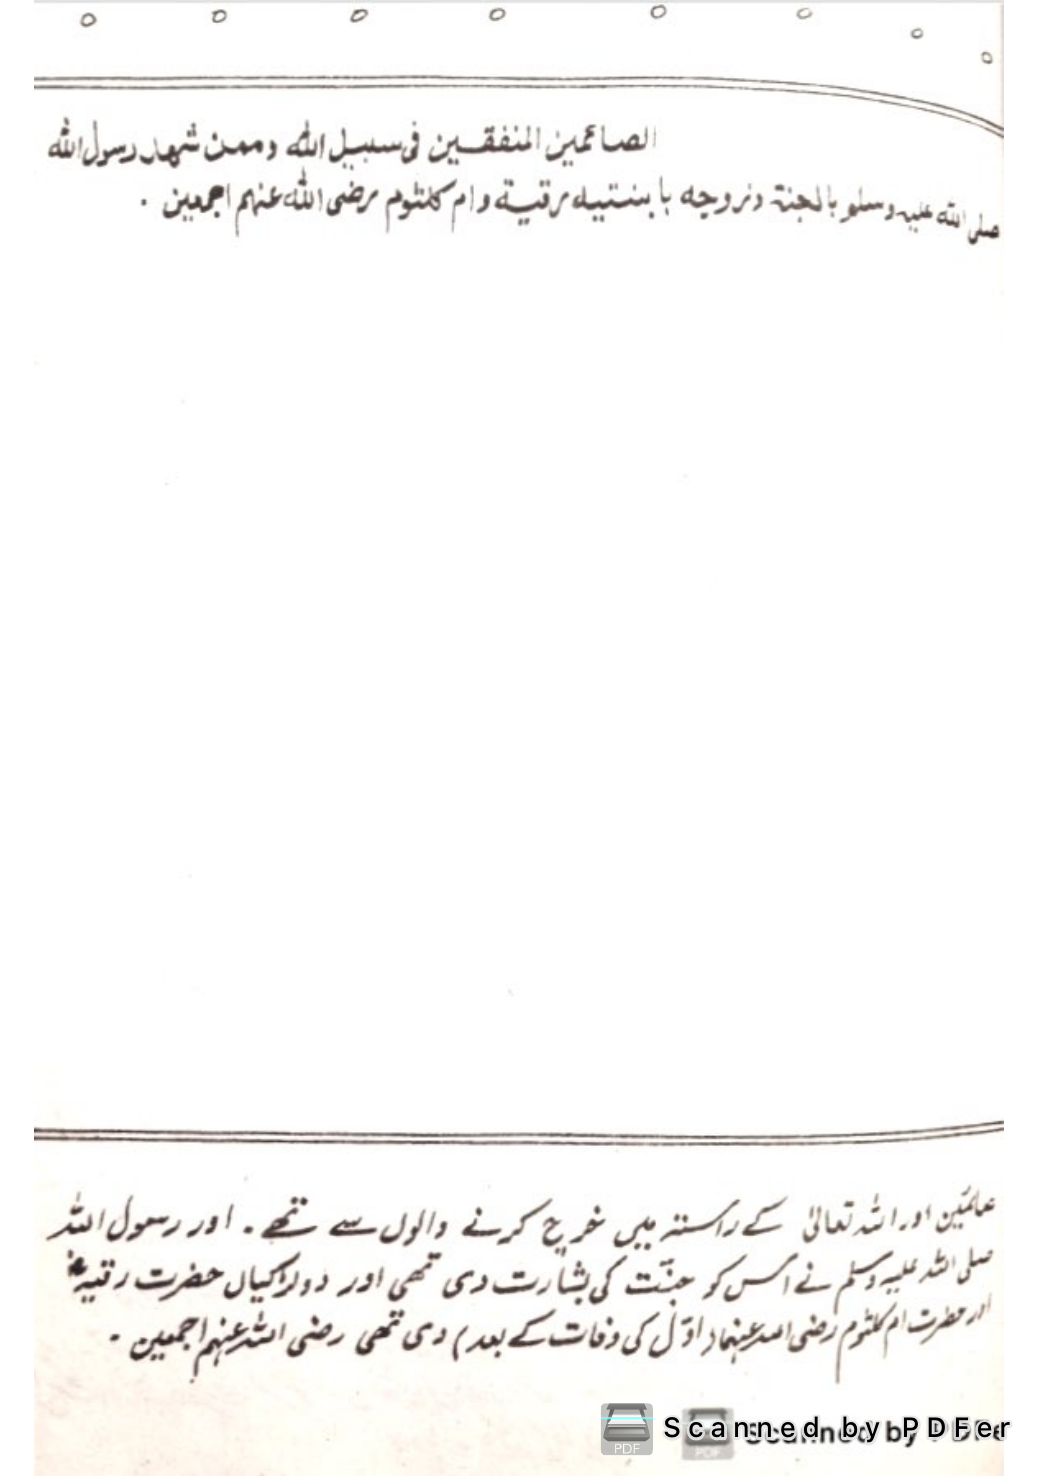 الصائمین المنفقین فی سبیل الله وممن شهد رسول الله
صلی الله علیه وسلم بالجنة وزوجه بابنتیه رقیة وام کلثوم رضی الله عنهم اجمعین ۔
اور اللہ تعالیٰ کے راستہ میں خرچ کرنے والوں سے تھے ۔ اور رسول اللہ
صلی اللہ علیہ وسلم نے اس کو جنّت کی بشارت دی تھی اور دو لڑکیاں حضرت رقیہؓ
اور حضرت ام کلثوم رضی اللہ عنہما (اوّل کی وفات کے بعد) دی تھی رضی اللہ عنہم اجمعین ۔
Scanned by PDFer
Scanned by PDFe